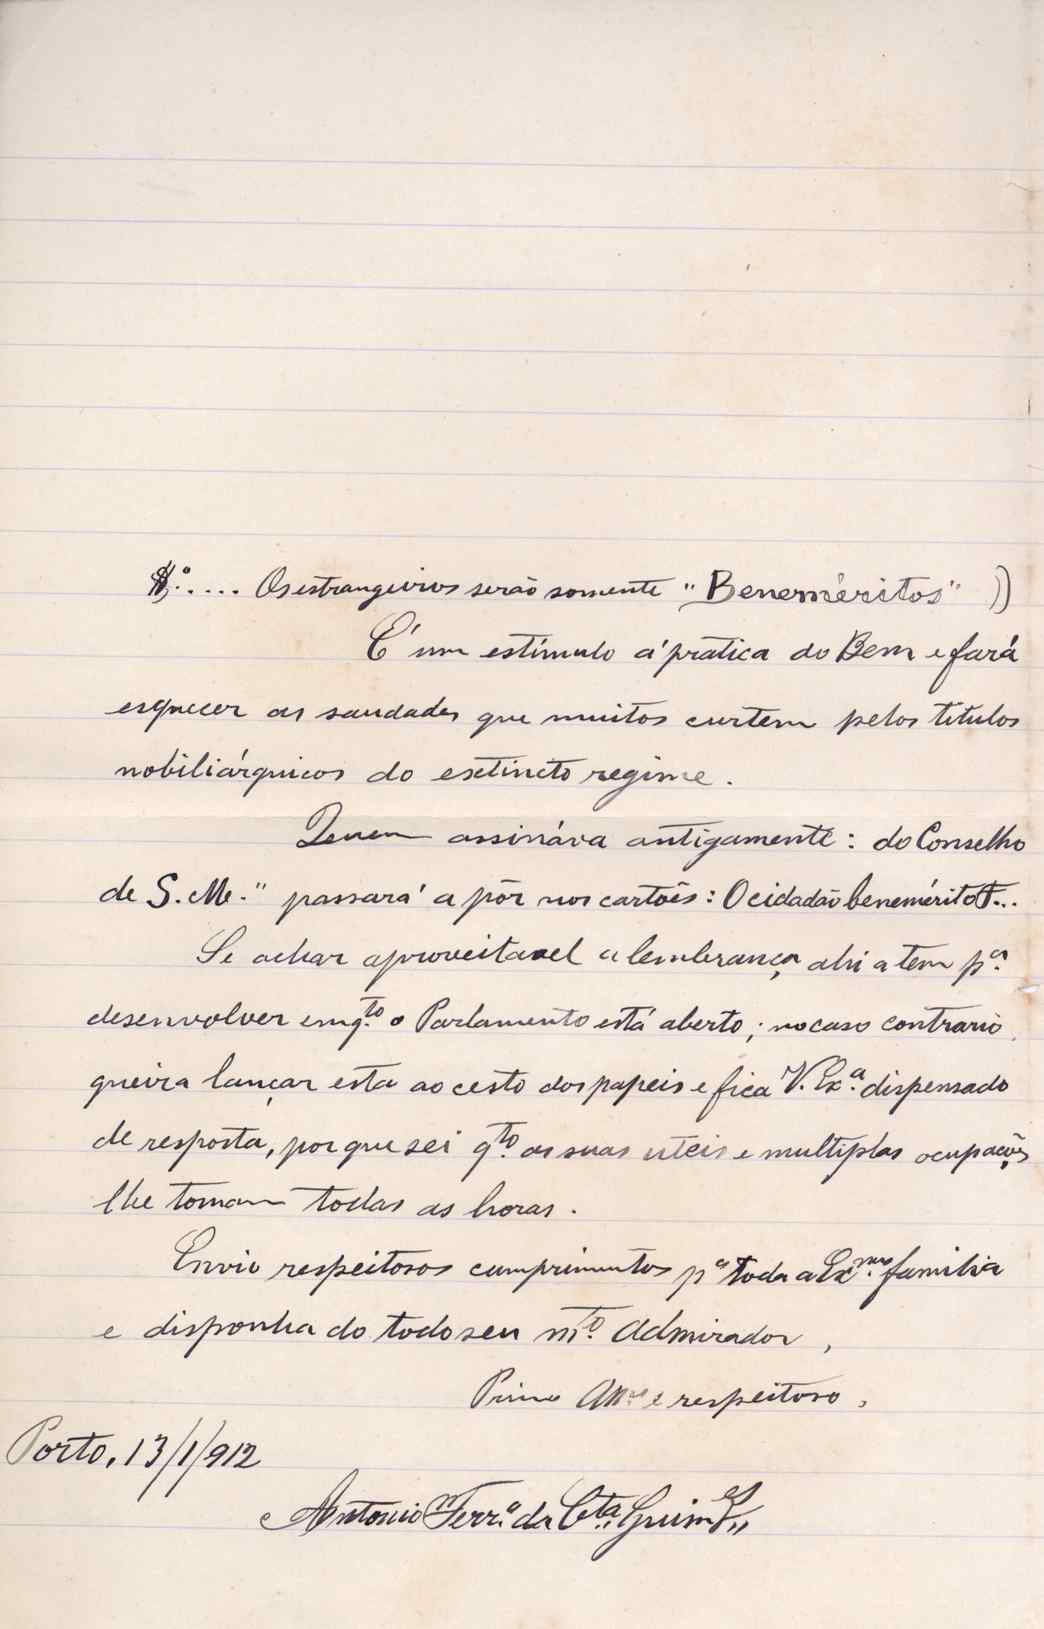 §.º.... Os estrangeiros serão somente "Beneméritos" ))
É um estímulo á prática do Bem e fará
esquecer as saudades que muitos curtem pelos titulos
nobiliárquicos do extincto regime.
Quem assináva antigamente: do Conselho
de S. M." passará a pôr nos cartões: O cidadão benemérito F...
Se achar aproveitavel a lembrança, ahi a tem p.ª
desenvolver emq.to o Parlamento está aberto; no caso contrario,
queira lançar esta ao cesto dos papeis e fica V. Ex.ª dispensado
de resposta, porque sei q.to as suas uteis e multiplas ocupações
lhe tomam todas as horas.
Envio respeitosos cumprimentos p.ª toda a Ex.ma familia
e disponha do todo seu m.to Admirador,
Primo Am.º e respeitoso,
Porto, 13/1/912
Antonio Ferr.ª da C.ta Guim.es